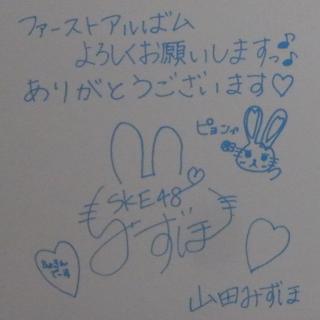 ファーストアルばム
よろしくお願いしますっ♪
ありがとうございます♡
ピョン
SKE48
ずほ
山田みずほ